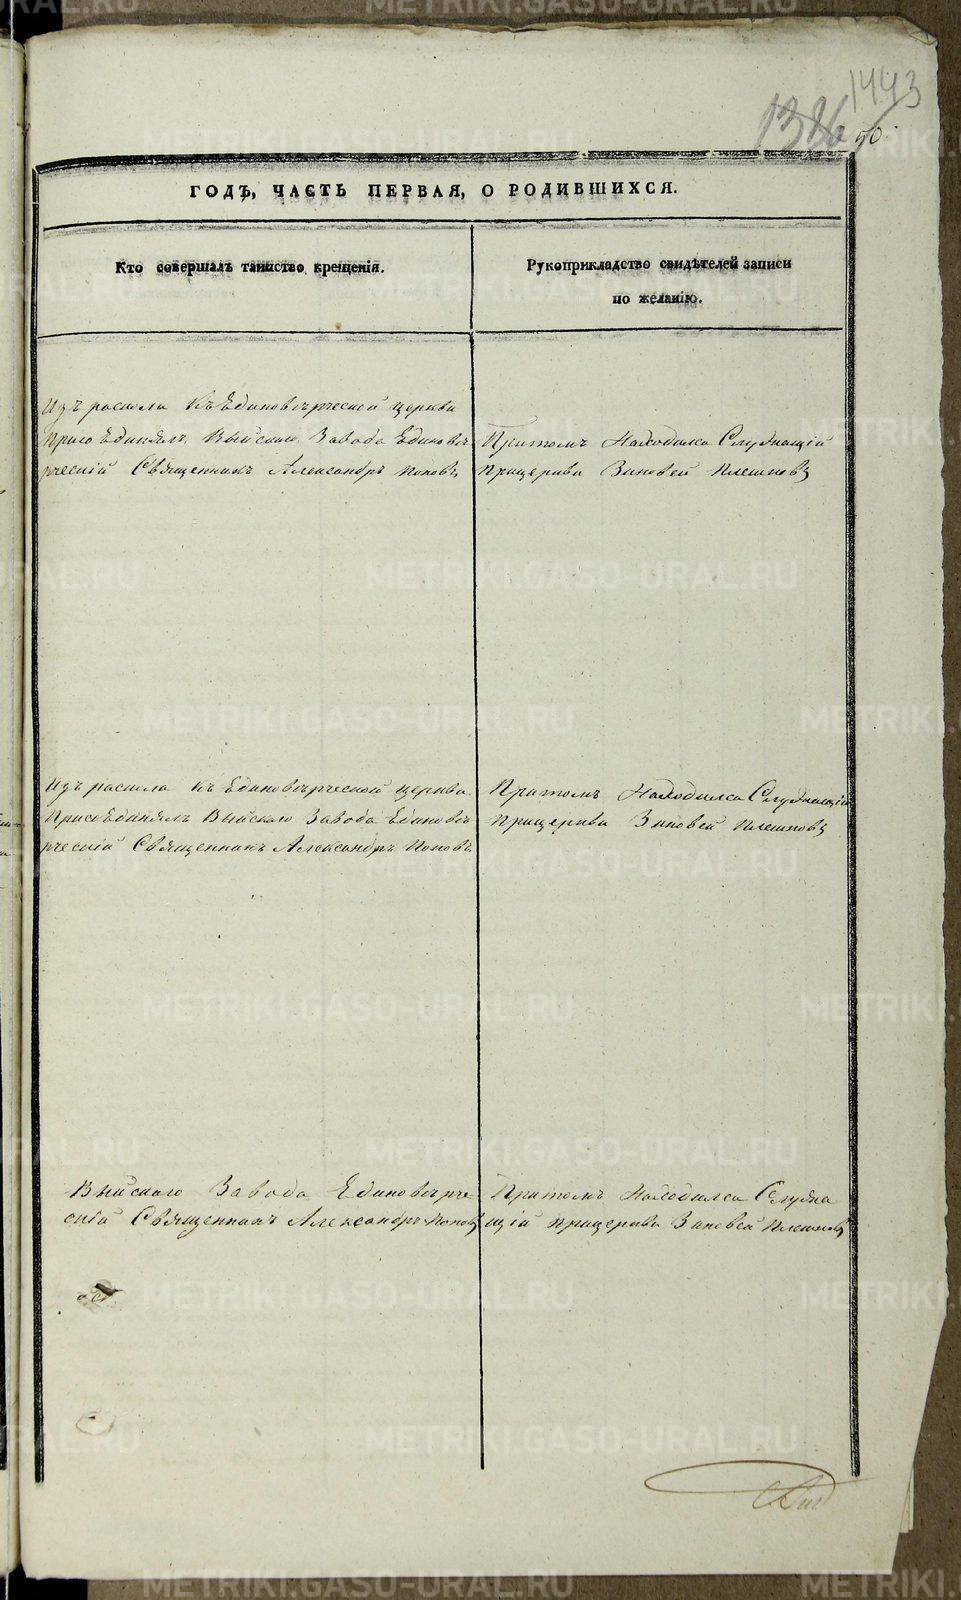 1443
1386
50.
ГОДЪ, ЧАСТЬ ПЕРВАЯ, О РОДИВШИХСЯ.
Кто совершалъ таинство крещенія.
Рукоприкладство свидѣтелей записи
по желанію.
Изъ раскола Къ Единовѣрческой церкви
присоЕдинялъ Выйскаго Завода Единовѣ
рческій Священникъ Александръ Поповъ
Притомъ Находился Служащій
прицеркви Зиновей Плешковъ
Изъ раскола Къ Единовѣрческой церкви
ПрисоЕдинялъ Выйскаго Завода Единовѣ
рческій Священникъ Александръ Поповъ
Притомъ Находился Служащій
прицеркви Зиновей Плешковъ
Выйскаго Завода Единовѣрче
скій Священникъ Александръ Поповъ
Притомъ Находился Служа
щій прицеркви Зиновей Плешковъ
METRIKI.GASO-URAL.RU